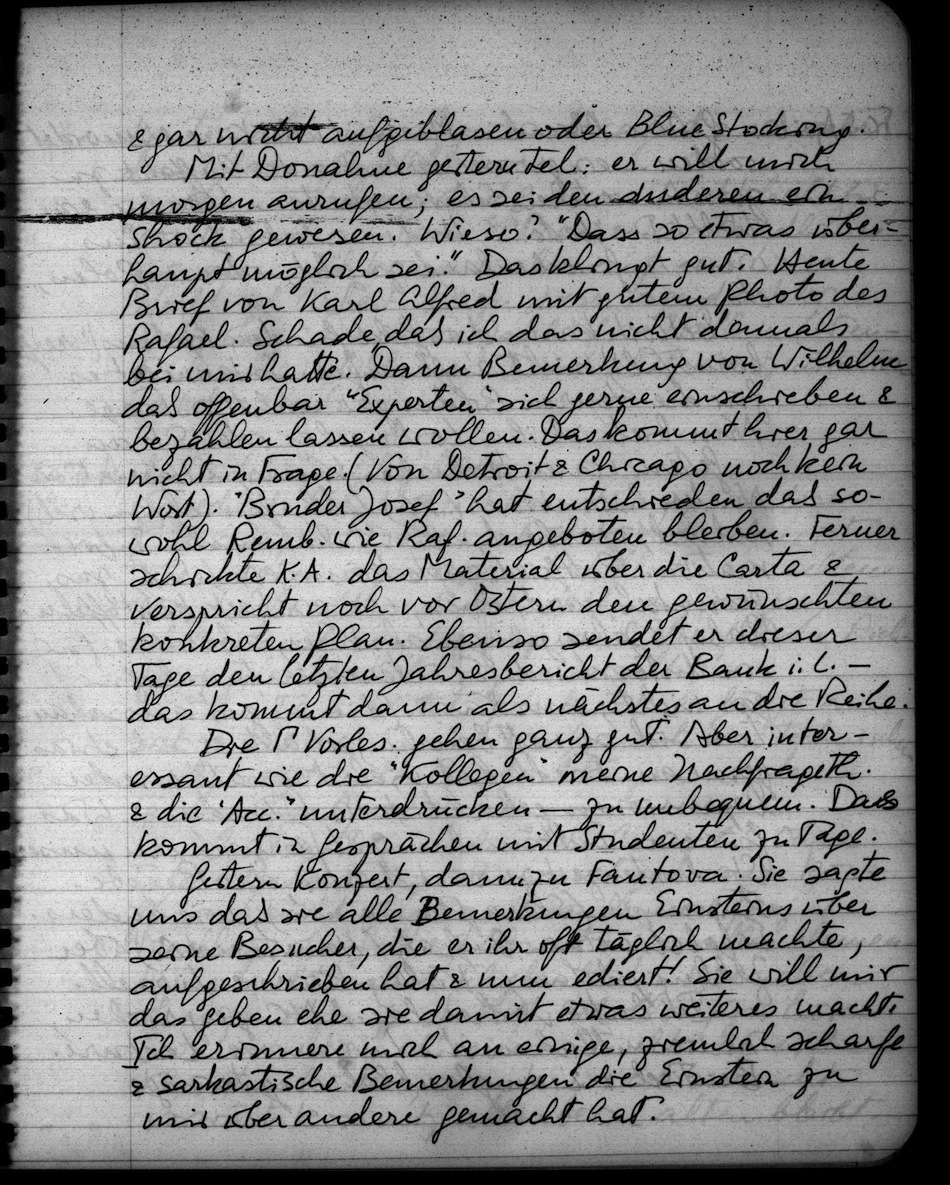 & gar nicht aufgeblasen oder Blue Stocking.
Mit Donahue gestern tel: er will mich
morgen anrufen; es sei den anderen ein
Shock gewesen. Wieso? "Dass so etwas über-
haupt möglich sei." Das klingt gut. Heute
Brief von Karl Alfred mit gutem Photo des
Rafael. Schade das ich das nicht damals
bei mir hatte. Dann Bemerkung von Wilhelm
das offenbar "Experten" sich gerne einschieben &
bezahlen lassen wollen. Das kommt hier gar
nicht in Frage. (Von Detroit & Chicago noch kein
Wort). "Bruder Josef" hat entschieden das so-
wohl Remb. wie Raf. angeboten bleiben. Ferner
schickte K.A. das Material über die Carta &
verspricht noch vor Ostern den gewünschten
konkreten Plan. Ebenso sendet er dieser
Tage den letzten Jahresbericht der Bank i. L. —
das kommt dann als nächstes an die Reihe.
Die Γ Vorles. gehen ganz gut. Aber inter-
essant wie die "Kollegen" meine Nachfrageth.
& die "Acc." unterdrücken — zu unbequem. Das
kommt in Gesprächen mit Studenten zu Tage.
Gestern Konzert, dann zu Fantova. Sie sagte
uns das sie alle Bemerkungen Einsteins über
seine Besucher, die er ihr oft täglich machte,
aufgeschrieben hat & nun ediert! Sie will mir
das geben ehe sie damit etwas weiteres macht.
Ich erinnere mich an einige, ziemlich scharfe
& sarkastische Bemerkungen die Einstein zu
mir über andere gemacht hat.